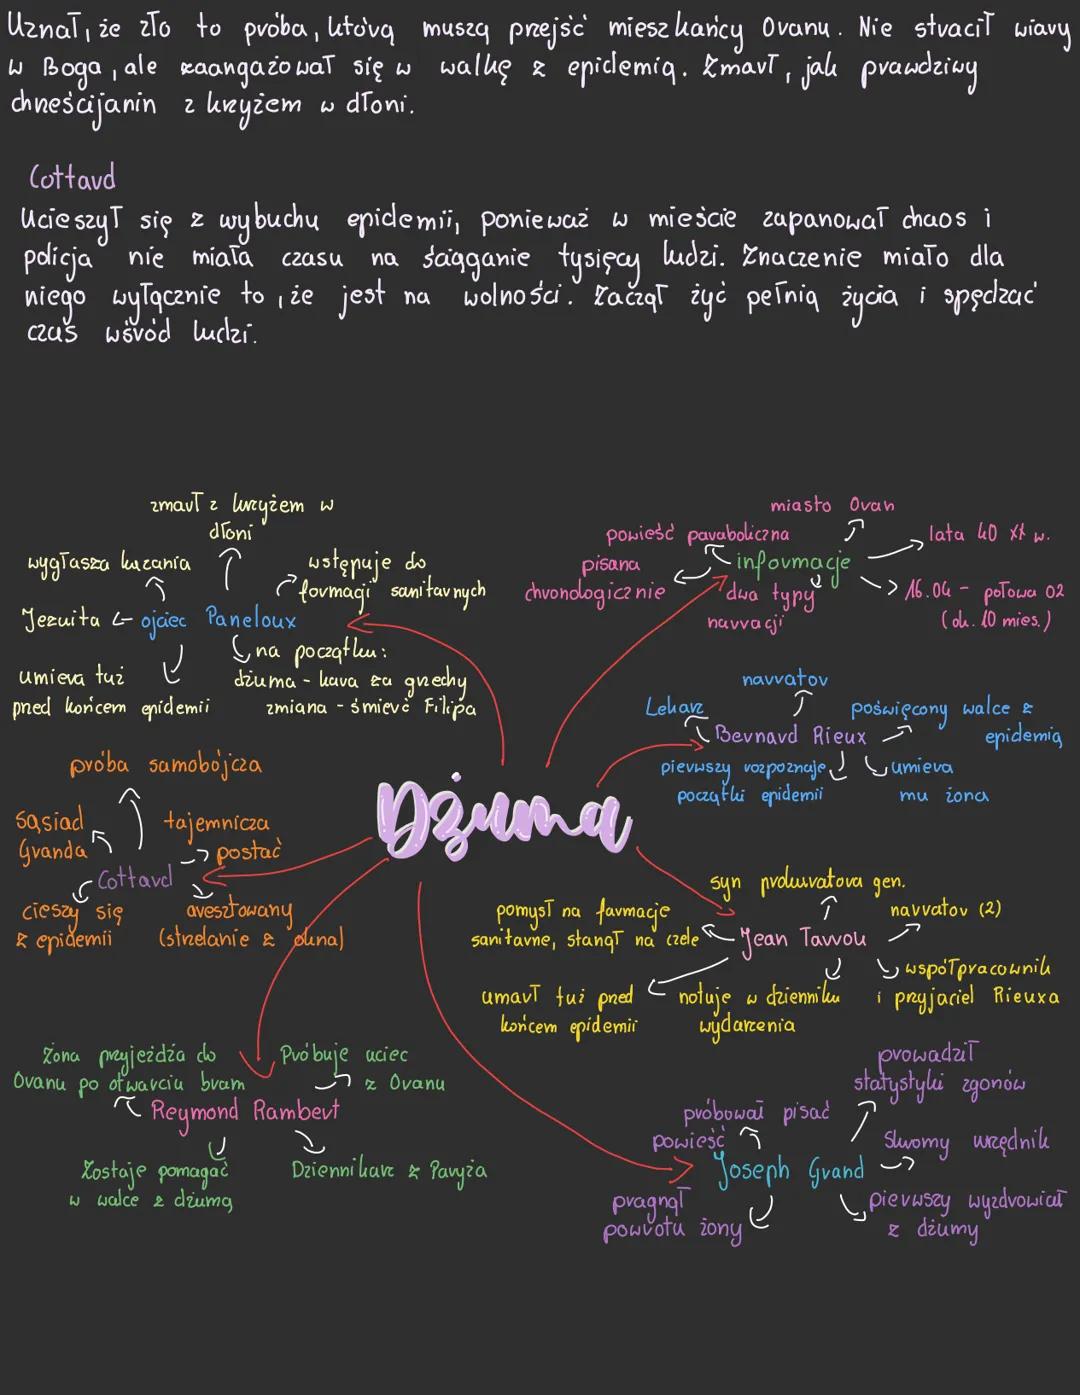 Uznał, że zło to próba, którą muszą przejść mieszkańcy Oranu. Nie stracił wiary
w Boga, ale zaangażował się w walkę z epidemią. Zmarł, jak prawdziwy
chrześcijanin z krzyżem w dłoni.
Cottard
Ucieszył się z wybuchu epidemii, ponieważ w mieście zapanował chaos i
policja nie miała czasu na ściąganie tysięcy ludzi. Znaczenie miało dla
niego wyłącznie to, że jest na wolności. Zaczął żyć pełnią życia i spędzać
czas wśród ludzi.
zmarł z krzyżem w
dłoni
wygłasza kazania
wstępuje do
formacji sanitarnych
Jezuita
ojciec Paneloux
na początku:
dżuma - kara za grzechy
zmiana - śmierć Filipa
umiera tuż
przed końcem epidemii
miasto Oran
powieść paraboliczna
lata 40 XX w.
informacje
pisana
chronologicznie
dwa typy
narracji
16.04 - połowa 02
(ok. 10 mies.)
narrator
Lekarz
poświęcony walce z
epidemią
Bernard Rieux
pierwszy rozpoznaje
początki epidemii
umiera
mu żona
próba samobójcza
sąsiad
Granda
tajemnicza
postać
Cottard
cieszy się
z epidemii
aresztowany
(strzelanie z okna)
Dżuma
syn prokuratora gen.
pomysł na farmacje
sanitarne, stanął na czele
narrator (2)
Jean Tarrou
umarł tuż przed
końcem epidemii
notuje w dzienniku
wydarzenia
współpracownik
i przyjaciel Rieuxa
Żona przyjeżdża do
Oranu po otwarciu bram
Próbuje uciec
z Oranu
Reymond Rambert
Zostaje pomagać
w walce z dżumą
Dziennikarz z Paryża
prowadził
statystyki zgonów
próbował pisać
powieść
Skromny urzędnik
Joseph Grand
pragnął
powrotu żony
pierwszy wyzdrowiał
z dżumy